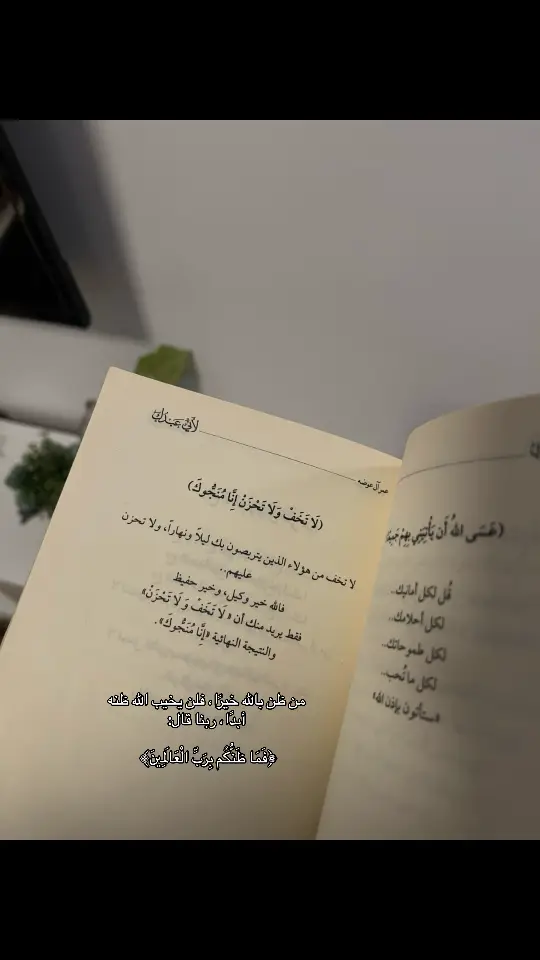 لأني عبدك
عبير آل عوضه
(لَا تَخَفْ وَلَا تَحْزَنْ إِنَّا مُنَجُّوكَ)
لا تخف من هؤلاء الذين يتربصون بك ليلاً ونهاراً، ولا تحزن
عليهم..
فالله خير وكيل، وخير حفيظ
فقط يريد منك أن «لَا تَخَفْ وَلَا تَحْزَنْ»
والنتيجة النهائية «إِنَّا مُنَجُّوكَ».
(عَسَى اللهُ أَن يَأْتِيَنِي بِهِمْ
قُل لكل أمانيك..
لكل أحلامك..
لكل طموحاتك..
لكل ما تُحب..
«ستأتون بإذن الله»
من ظن بالله خيرًا ، فلن يخيب الله ظنه
أبدًا ، ربنا قال:
﴿فَمَا ظَنُّكُم بِرَبِّ الْعَالَمِينَ﴾